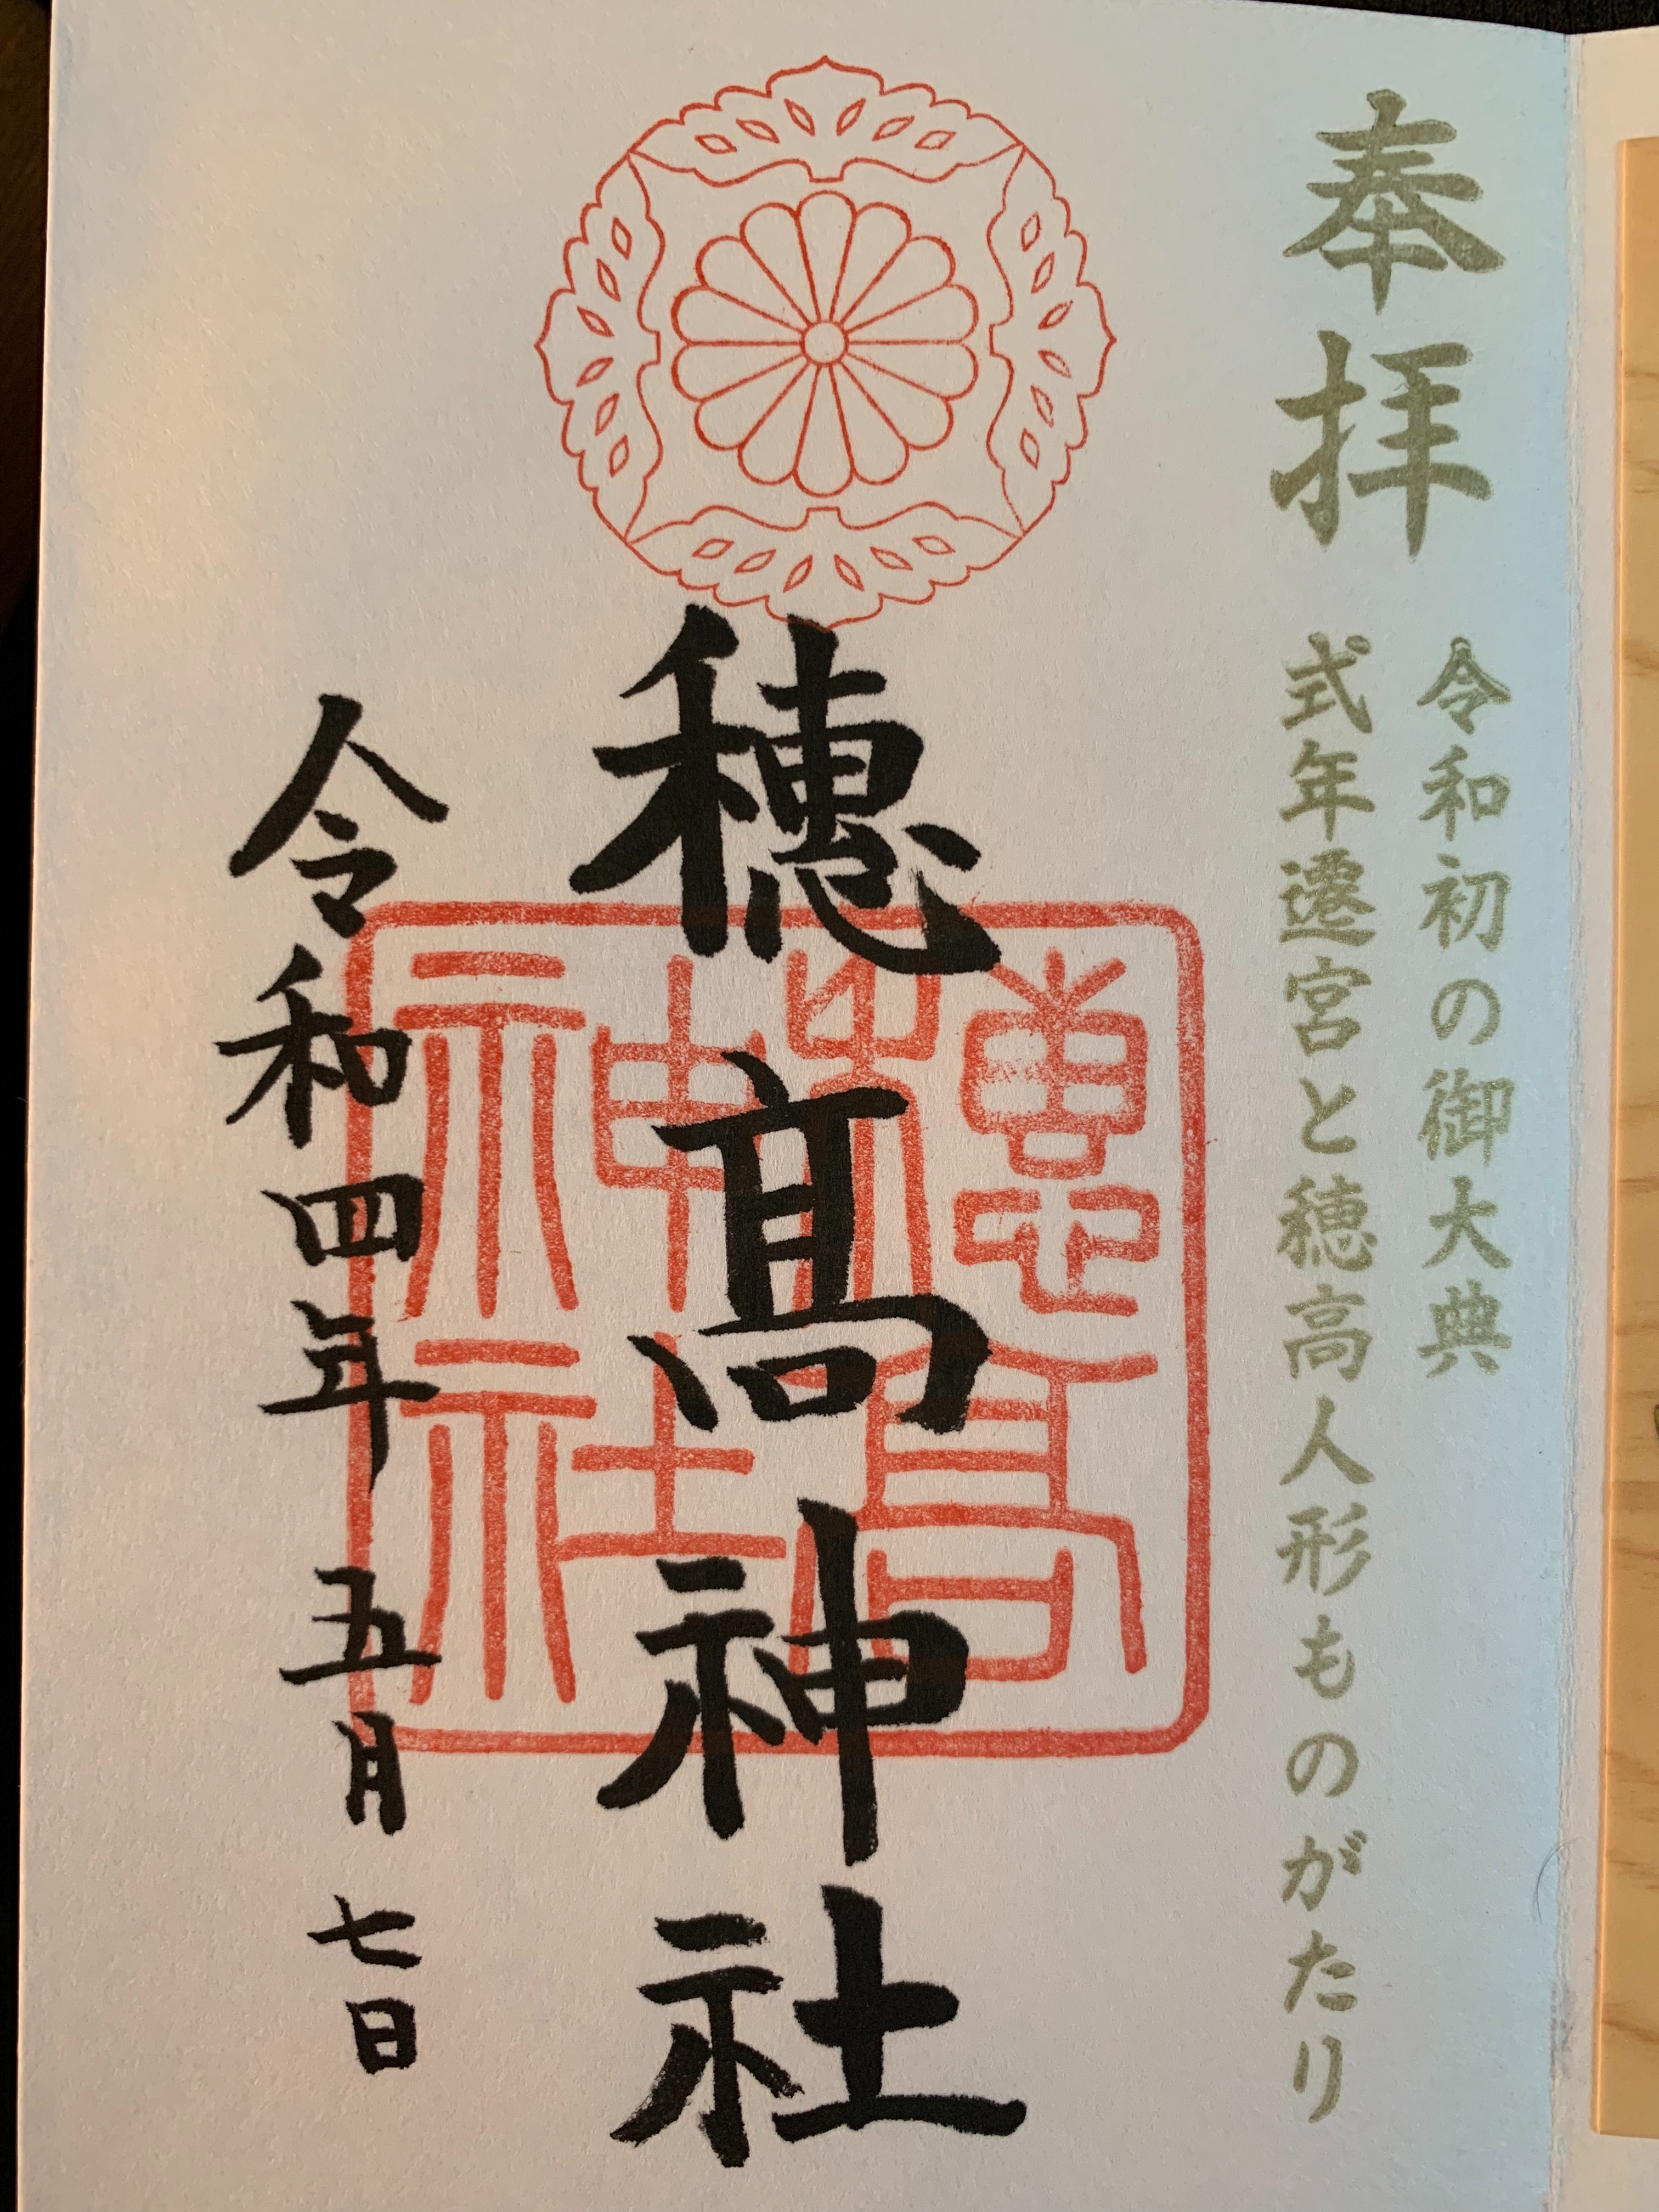 奉拝
令和初の御大典
式年遷宮と穂高人形ものがたり
穗髙神社
穗髙神社
令和四年五月七日